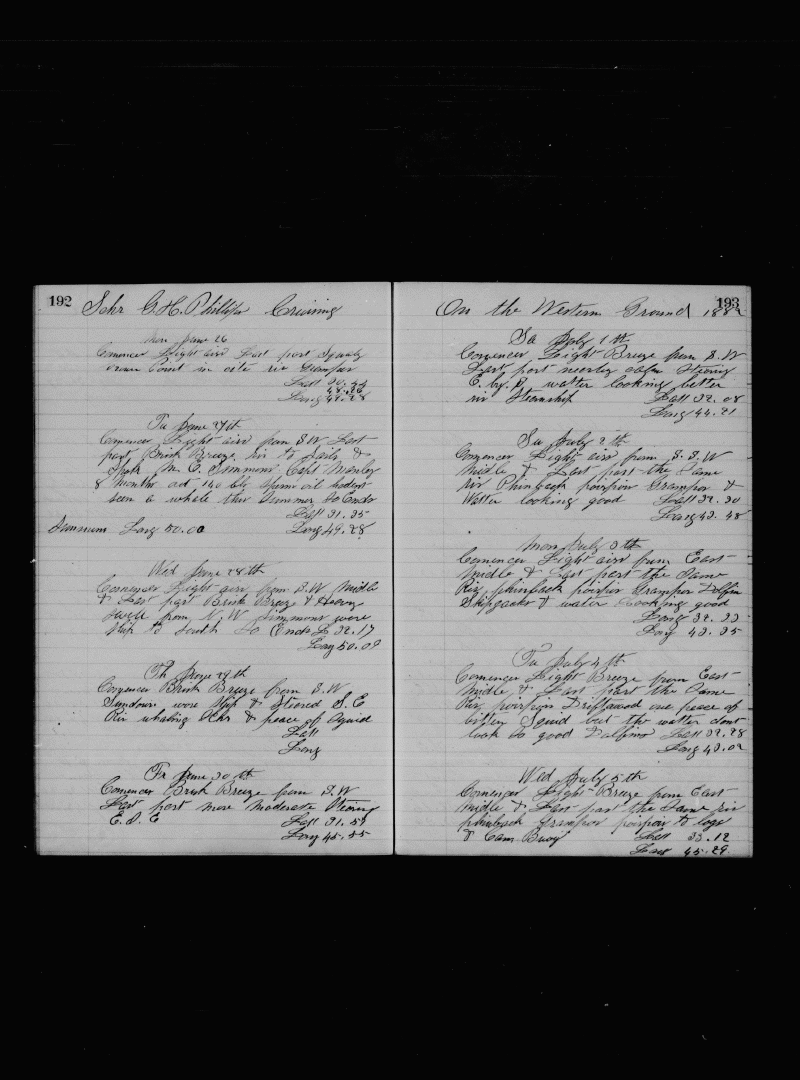 192 Schr G.H. Phillips Cruising
Mon June 26
Comences Light airs Last part Squaly
Long 49.28
Tu June 27th
Comences Light airs from S.W Last
part Brisk Breeze ris to Sails &
Spok M. E. Simmons Capt Manley
8 months out 140 bbl sperm oil hadent
seen a whale this Summer So Ends
Latt 31.35
Long 50.00 Long 49.28
Wed June 28th
Comences Light airs from S.W Middle
& Last part Brisk Breeze & Heavy
Swell from N.W Simmons wore
Ship to South So Ends L 32.17
Long 50.09
Th June 29th
Comences Brisk Breeze from S.W
Sundown wore Ship & Stered S.E
Ris whaling Schr & peace of Squid
Latt
Long
Fr June 30th
Comences Brisk Breeze from S.W
Last part more moderate Stering
E.S.E Latt 31.52
Long 45.55
On the Western Ground 1882 193
Sa July 1th
Comences Light Breeze from S.W
Last part nearly calm Stering
E. by. S. watter looking better
ris Steamship Latt 32.08
Long 44.21
Su July 2th
Comences Light airs from S.S.W
middle & Last part the Same
Ris Phinback porpois Grampos &
Watter looking good Latt 32.30
Long 43.48
Mon July 3th
Comences Light airs from East
middle & Last part the Same
Ris phinback porpois Grampos Dolfin
Skipjacks & water looking good
Long 43.35
Tu July 4th
Comences Light Breeze from East
Middle & Last part the Same
Ris porpois Driftwood one peace of
bitten Squid but the watter dont
look so good Dalfins Latt 32.28
Long 43.02
Wed July 5th
Comences Light Breeze from East
midle & Last part the Same ris
phinback Grampos porpois to logs
& Cann Buoy Latt 33.12
45.29